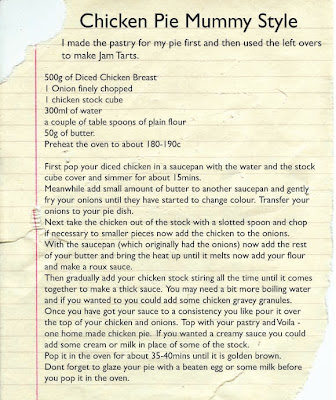 Chicken Pie Mummy Style
I made the pastry for my pie first and then used the left overs
to make Jam Tarts.
500g of Diced Chicken Breast
1 Onion finely chopped
1 chicken stock cube
300ml of water
a couple of table spoons of plain flour
50g of butter.
Preheat the oven to about 180-190c
First pop your diced chicken in a saucepan with the water and the stock
cube cover and simmer for about 15mins.
Meanwhile add small amount of butter to another saucepan and gently
fry your onions until they have started to change colour. Transfer your
onions to your pie dish.
Next take the chicken out of the stock with a slotted spoon and chop
if necessary to smaller pieces now add the chicken to the onions.
With the saucepan (which originally had the onions) now add the rest
of your butter and bring the heat up until it melts now add your flour
and make a roux sauce.
Then gradually add your chicken stock stiring all the time until it comes
together to make a thick sauce. You may need a bit more boiling water
and if you wanted to you could add some chicken gravey granules.
Once you have got your sauce to a consistency you like pour it over
the top of your chicken and onions. Top with your pastry and Voila -
one home made chicken pie. If you wanted a creamy sauce you could
add some cream or milk in place of some of the stock.
Pop it in the oven for about 35-40mins until it is golden brown.
Dont forget to glaze your pie with a beaten egg or some milk before
you pop it in the oven.